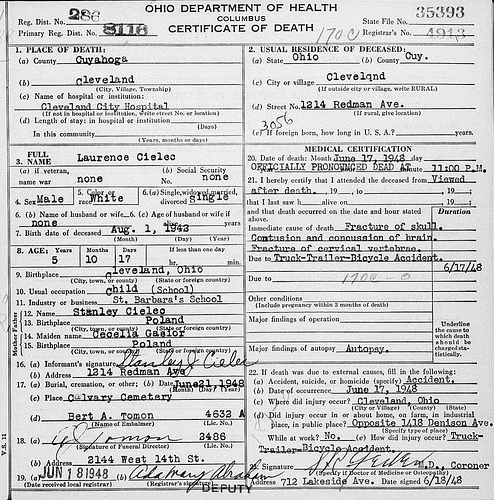 OHIO DEPARTMENT OF HEALTH
COLUMBUS
CERTIFICATE OF DEATH
Reg. Dist. No. 286
Primary Reg. Dist. No. 8118
State File No. 35393
Registrar's No. 4913
170C
1. PLACE OF DEATH:
(a) County Cuyahoga
(b) Cleveland
(City, Village, Township)
(c) Name of hospital or institution:
Cleveland City Hospital
(If not in hospital or institution, write street No. or location)
(d) Length of stay: in hospital or institution
(Days)
In this community
(Years, months or days)
2. USUAL RESIDENCE OF DECEASED:
(a) State Ohio (b) County Cuy.
(c) City or village Clevelqnd
(If outside city or village, write RURAL)
(d) Street No. 1214 Redman Ave.
(If rural, give location)
3056
(e) If foreign born, how long in U. S. A.? years.
3. FULL NAME Laurence Cielec
(a) If veteran, name war none
(b) Social Security No. none
4. Sex Male
5. Color or race White
6. (a) Single, widowed, married, divorced Single
6. (b) Name of husband or wife none
6. (c) Age of husband or wife if alive years
7. Birth date of deceased Aug. 1, 1942
(Month) (Day) (Year)
8. AGE: Years 5 Months 10 Days 17 If less than one day
hr. min.
9. Birthplace Cleveland, Ohio
(City, town, or county) (State or foreign country)
10. Usual occupation Child (School)
11. Industry or business St. Barbara's School
12. Name Stanley Cielec
13. Birthplace Poland
(City, town, or county) (State or foreign country)
14. Maiden name Cecelia Gasior
15. Birthplace Poland
(City, town, or county) (State or foreign country)
Father
Mother
16. (a) Informant's signature Stanley J Cielec
(b) Address 1214 Redman Ave
17. (a) Burial, cremation, or other; (b) Date June21, 1948
(Month) (Day) (Year)
(c) Place Calvary Cemetery
(d) Bert A. Tomon 4632 A
(Name of Embalmer) (Lic. No.)
18. (a) Tomon 2486
(Signature of Funeral Director) (Lic. No.)
(b) 2144 West 14th St.
19. (a) JUN 18 1948 (b)
(Date received local registrar) (Registrar's signature)
DEPUTY
V.S. 11
MEDICAL CERTIFICATION
20. Date of death: Month June 17, 1948 day
OFFICIALLY PRONOUNCED DEAD AT minute 11:00 P.M.
21. I hereby certify that I attended the deceased from Viewed
after death. , 19 , to , 19 ;
that I last saw h alive on , 19 ;
and that death occurred on the date and hour stated above.
Duration
Immediate cause of death Fracture of skull.
Contusion and concussion of brain.
Fracture of cervical vertebrae.
Due to Truck-Trailer-Bicycle Accident.
6/17/48
Due to 170C-0
Other conditions
(Include pregnancy within 3 months of death)
Major findings of operation
Major findings of autopsy Autopsy.
Underline the cause to which death should be charged statistically.
22. If death was due to external causes, fill in the following:
(a) Accident, suicide, or homicide (specify) Accident.
(b) Date of occurrence June 17, 1948
(c) Where did injury occur? Cleveland, Ohio
(City or Village) (County) (State)
(d) Did injury occur in or about home, on farm, in industrial
place, in public place? Opposite 1418 Denison Ave.
While at work? No. (e) How did injury occur? Truck-
Trailer-Bicycle Accident.
23. Signature M.D., Coroner
(Specify if Doctor of Medicine or Osteopathy)
Address 712 Lakeside Ave. Date signed 6/18/48